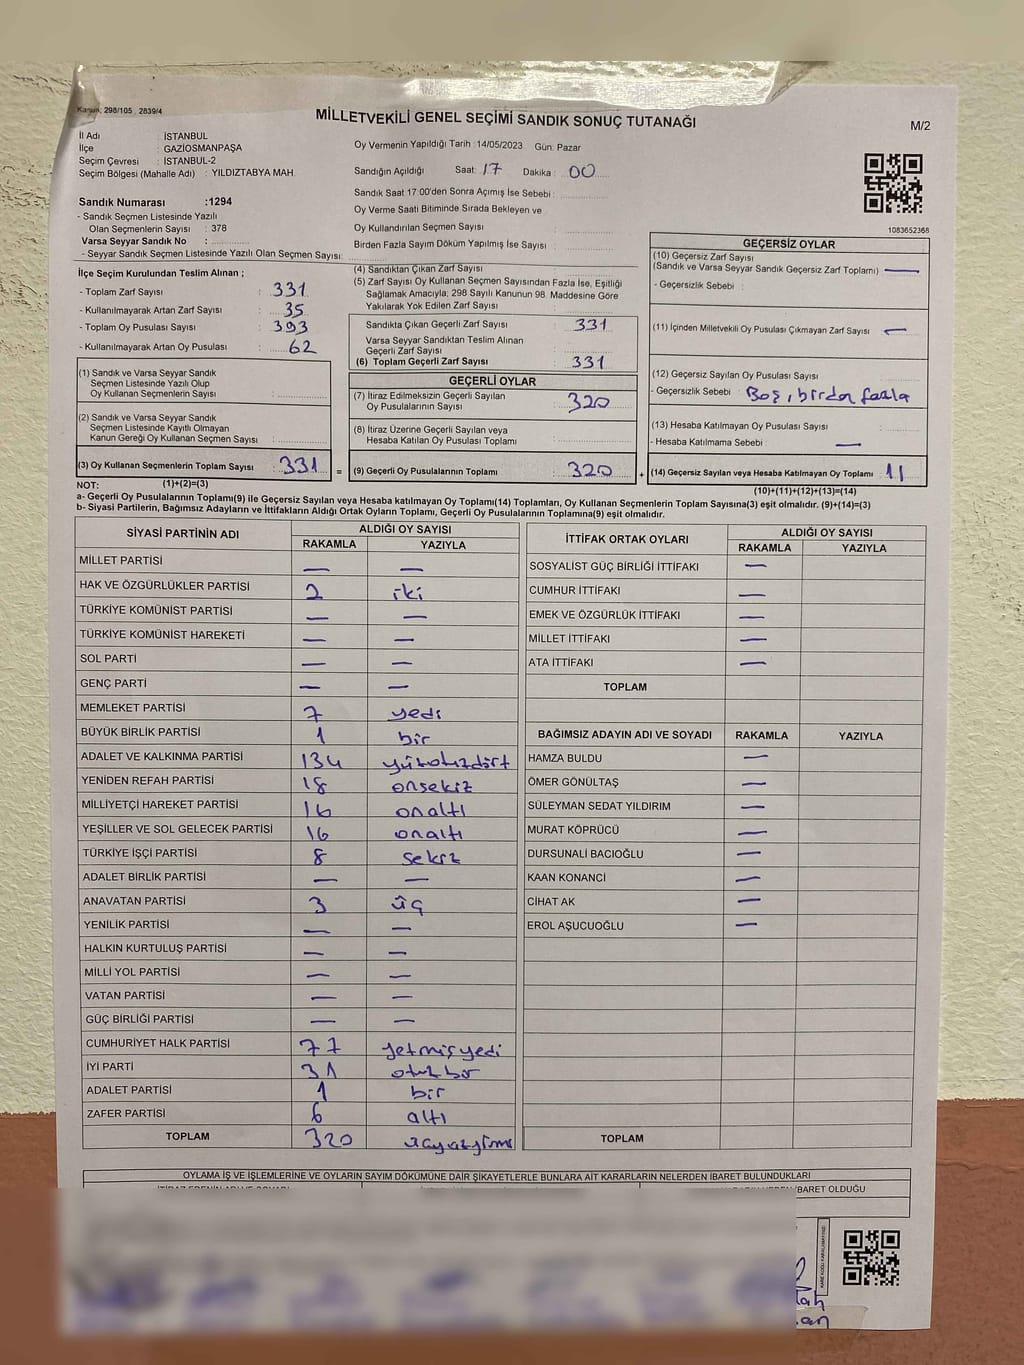 Kanun: 298/105 2839/4
MİLLETVEKİLİ GENEL SEÇİMİ SANDIK SONUÇ TUTANAĞI
M/2
İl Adı : İSTANBUL
İlçe : GAZİOSMANPAŞA
Seçim Çevresi : İSTANBUL-2
Seçim Bölgesi (Mahalle Adı) : YILDIZTABYA MAH.
Sandık Numarası :1294
- Sandık Seçmen Listesinde Yazılı
Olan Seçmenlerin Sayısı : 378
Varsa Seyyar Sandık No :
- Seyyar Sandık Seçmen Listesinde Yazılı Olan Seçmen Sayısı:
Oy Vermenin Yapıldığı Tarih :14/05/2023 Gün: Pazar
Sandığın Açıldığı Saat: 17 Dakika : 00
Sandık Saat 17:00'den Sonra Açımış İse Sebebi :
Oy Verme Saati Bitiminde Sırada Bekleyen ve
Oy Kullandırılan Seçmen Sayısı :
Birden Fazla Sayım Döküm Yapılmış İse Sayısı :
1083652368
İlçe Seçim Kurulundan Teslim Alınan ;
- Toplam Zarf Sayısı : 331
- Kullanılmayarak Artan Zarf Sayısı : 35
- Toplam Oy Pusulası Sayısı : 393
- Kullanılmayarak Artan Oy Pusulası : 62
(1) Sandık ve Varsa Seyyar Sandık
Seçmen Listesinde Yazılı Olup
Oy Kullanan Seçmenlerin Sayısı :
(2) Sandık ve Varsa Seyyar Sandık
Seçmen Listesinde Kayıtlı Olmayan
Kanun Gereği Oy Kullanan Seçmen Sayısı :
(3) Oy Kullanan Seçmenlerin Toplam Sayısı : 331
(4) Sandıktan Çıkan Zarf Sayısı :
(5) Zarf Sayısı Oy Kullanan Seçmen Sayısından Fazla İse, Eşitliği
Sağlamak Amacıyla; 298 Sayılı Kanunun 98. Maddesine Göre
Yakılarak Yok Edilen Zarf Sayısı :
Sandıkta Çıkan Geçerli Zarf Sayısı : 331
Varsa Seyyar Sandıktan Teslim Alınan
Geçerli Zarf Sayısı :
(6) Toplam Geçerli Zarf Sayısı : 331
GEÇERLİ OYLAR
(7) İtiraz Edilmeksizin Geçerli Sayılan
Oy Pusulalarının Sayısı : 320
(8) İtiraz Üzerine Geçerli Sayılan veya
Hesaba Katılan Oy Pusulası Toplamı :
= (9) Geçerli Oy Pusulalarının Toplamı : 320
GEÇERSİZ OYLAR
(10) Geçersiz Zarf Sayısı
(Sandık ve Varsa Seyyar Sandık Geçersiz Zarf Toplamı) : —
- Geçersizlik Sebebi :
(11) İçinden Milletvekili Oy Pusulası Çıkmayan Zarf Sayısı : —
(12) Geçersiz Sayılan Oy Pusulası Sayısı :
- Geçersizlik Sebebi : Boş, birden fazla
(13) Hesaba Katılmayan Oy Pusulası Sayısı :
- Hesaba Katılmama Sebebi : —
+ (14) Geçersiz Sayılan veya Hesaba Katılmayan Oy Toplamı : 11
NOT: (1)+(2)=(3)
(10)+(11)+(12)+(13)=(14)
a- Geçerli Oy Pusulalarının Toplamı(9) ile Geçersiz Sayılan veya Hesaba katılmayan Oy Toplamı(14) Toplamları, Oy Kullanan Seçmenlerin Toplam Sayısına(3) eşit olmalıdır. (9)+(14)=(3)
b- Siyasi Partilerin, Bağımsız Adayların ve İttifakların Aldığı Ortak Oyların Toplamı, Geçerli Oy Pusulalarının Toplamına(9) eşit olmalıdır.
SİYASİ PARTİNİN ADI ALDIĞI OY SAYISI
RAKAMLA YAZIYLA
MİLLET PARTİSİ — —
HAK VE ÖZGÜRLÜKLER PARTİSİ 2 iki
TÜRKİYE KOMÜNİST PARTİSİ — —
TÜRKİYE KOMÜNİST HAREKETİ — —
SOL PARTİ — —
GENÇ PARTİ — —
MEMLEKET PARTİSİ 7 yedi
BÜYÜK BİRLİK PARTİSİ 1 bir
ADALET VE KALKINMA PARTİSİ 134 yüzotuzdört
YENİDEN REFAH PARTİSİ 18 onsekiz
MİLLİYETÇİ HAREKET PARTİSİ 16 onaltı
YEŞİLLER VE SOL GELECEK PARTİSİ 16 onaltı
TÜRKİYE İŞÇİ PARTİSİ 8 sekiz
ADALET BİRLİK PARTİSİ — —
ANAVATAN PARTİSİ 3 üç
YENİLİK PARTİSİ — —
HALKIN KURTULUŞ PARTİSİ — —
MİLLİ YOL PARTİSİ — —
VATAN PARTİSİ — —
GÜÇ BİRLİĞİ PARTİSİ — —
CUMHURİYET HALK PARTİSİ 77 yetmişyedi
İYİ PARTİ 31 otuzbir
ADALET PARTİSİ 1 bir
ZAFER PARTİSİ 6 altı
TOPLAM 320
İTTİFAK ORTAK OYLARI ALDIĞI OY SAYISI
RAKAMLA YAZIYLA
SOSYALİST GÜÇ BİRLİĞİ İTTİFAKI —
CUMHUR İTTİFAKI —
EMEK VE ÖZGÜRLÜK İTTİFAKI —
MİLLET İTTİFAKI —
ATA İTTİFAKI —
TOPLAM
BAĞIMSIZ ADAYIN ADI VE SOYADI RAKAMLA YAZIYLA
HAMZA BULDU —
ÖMER GÖNÜLTAŞ —
SÜLEYMAN SEDAT YILDIRIM —
MURAT KÖPRÜCÜ —
DURSUNALİ BACIOĞLU —
KAAN KONANCİ —
CİHAT AK —
EROL AŞUCUOĞLU —
TOPLAM
OYLAMA İŞ VE İŞLEMLERİNE VE OYLARIN SAYIM DÖKÜMÜNE DAİR ŞİKAYETLERLE BUNLARA AİT KARARLARIN NELERDEN İBARET BULUNDUKLARI
İBARET OLDUĞU